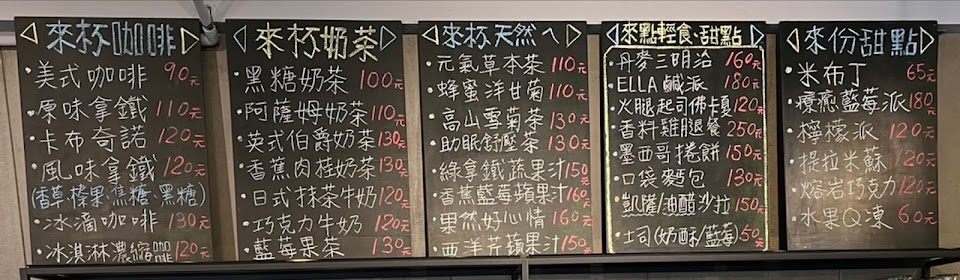 來杯咖啡
美式咖啡 90元
原味拿鐵 110元
卡布奇諾 120元
風味拿鐵 120元
(香草、榛果、焦糖、黑糖)
冰滴咖啡 130元
冰淇淋濃縮咖啡 120元
來杯奶茶
黑糖奶茶 100元
阿薩姆奶茶 110元
英式伯爵奶茶 130元
香蕉肉桂奶茶 130元
日式抹茶牛奶 120元
巧克力牛奶 120元
藍莓果茶 130元
來杯天然ㄟ
元氣草本茶 110元
蜂蜜洋甘菊 110元
高山雪菊茶 130元
助眠舒壓茶 130元
綠拿鐵蔬果汁 150元
香蕉藍莓蘋果汁 160元
果然好心情 160元
西洋芹蘋果汁 150元
來點輕食、甜點
丹麥三明治 160元
ELLA鹹派 180元
火腿起司佛卡夏 120元
香料雞腿餐 250元
墨西哥捲餅 150元
口袋麵包 130元
凱薩/油醋沙拉 150元
土司(奶酥/藍莓) 50元
來份甜點
米布丁 65元
療癒藍莓派 180元
檸檬派 120元
提拉米蘇 120元
熔岩巧克力 120元
水果Q凍 60元